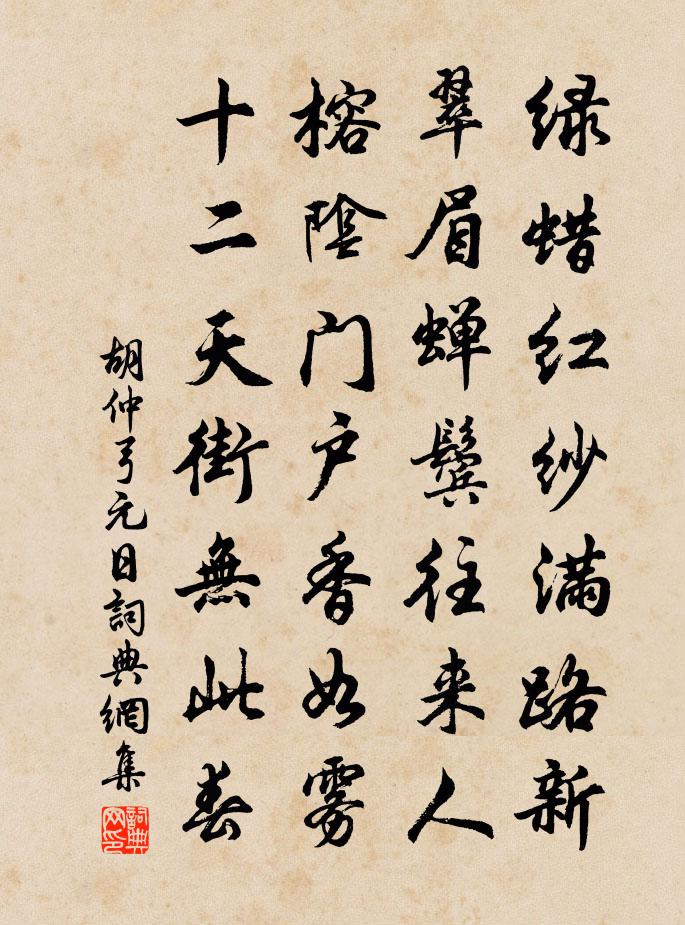 绿蜡红纱满路新
翠眉蝉鬓往来人
榕陰门户香如雾
十二天街無此春
胡仲弓元日詞典網集
詞典网印